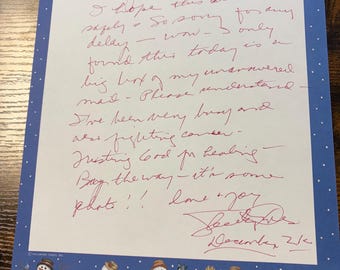 I hope this
safely & So sorry for any
delay - wow - I only
found this today in a
big box of my unanswered
mail - Please understand -
I've been very busy and
also fighting cancer -
Trusting God for healing -
By the way - it's some
photo!! Love & joy
December